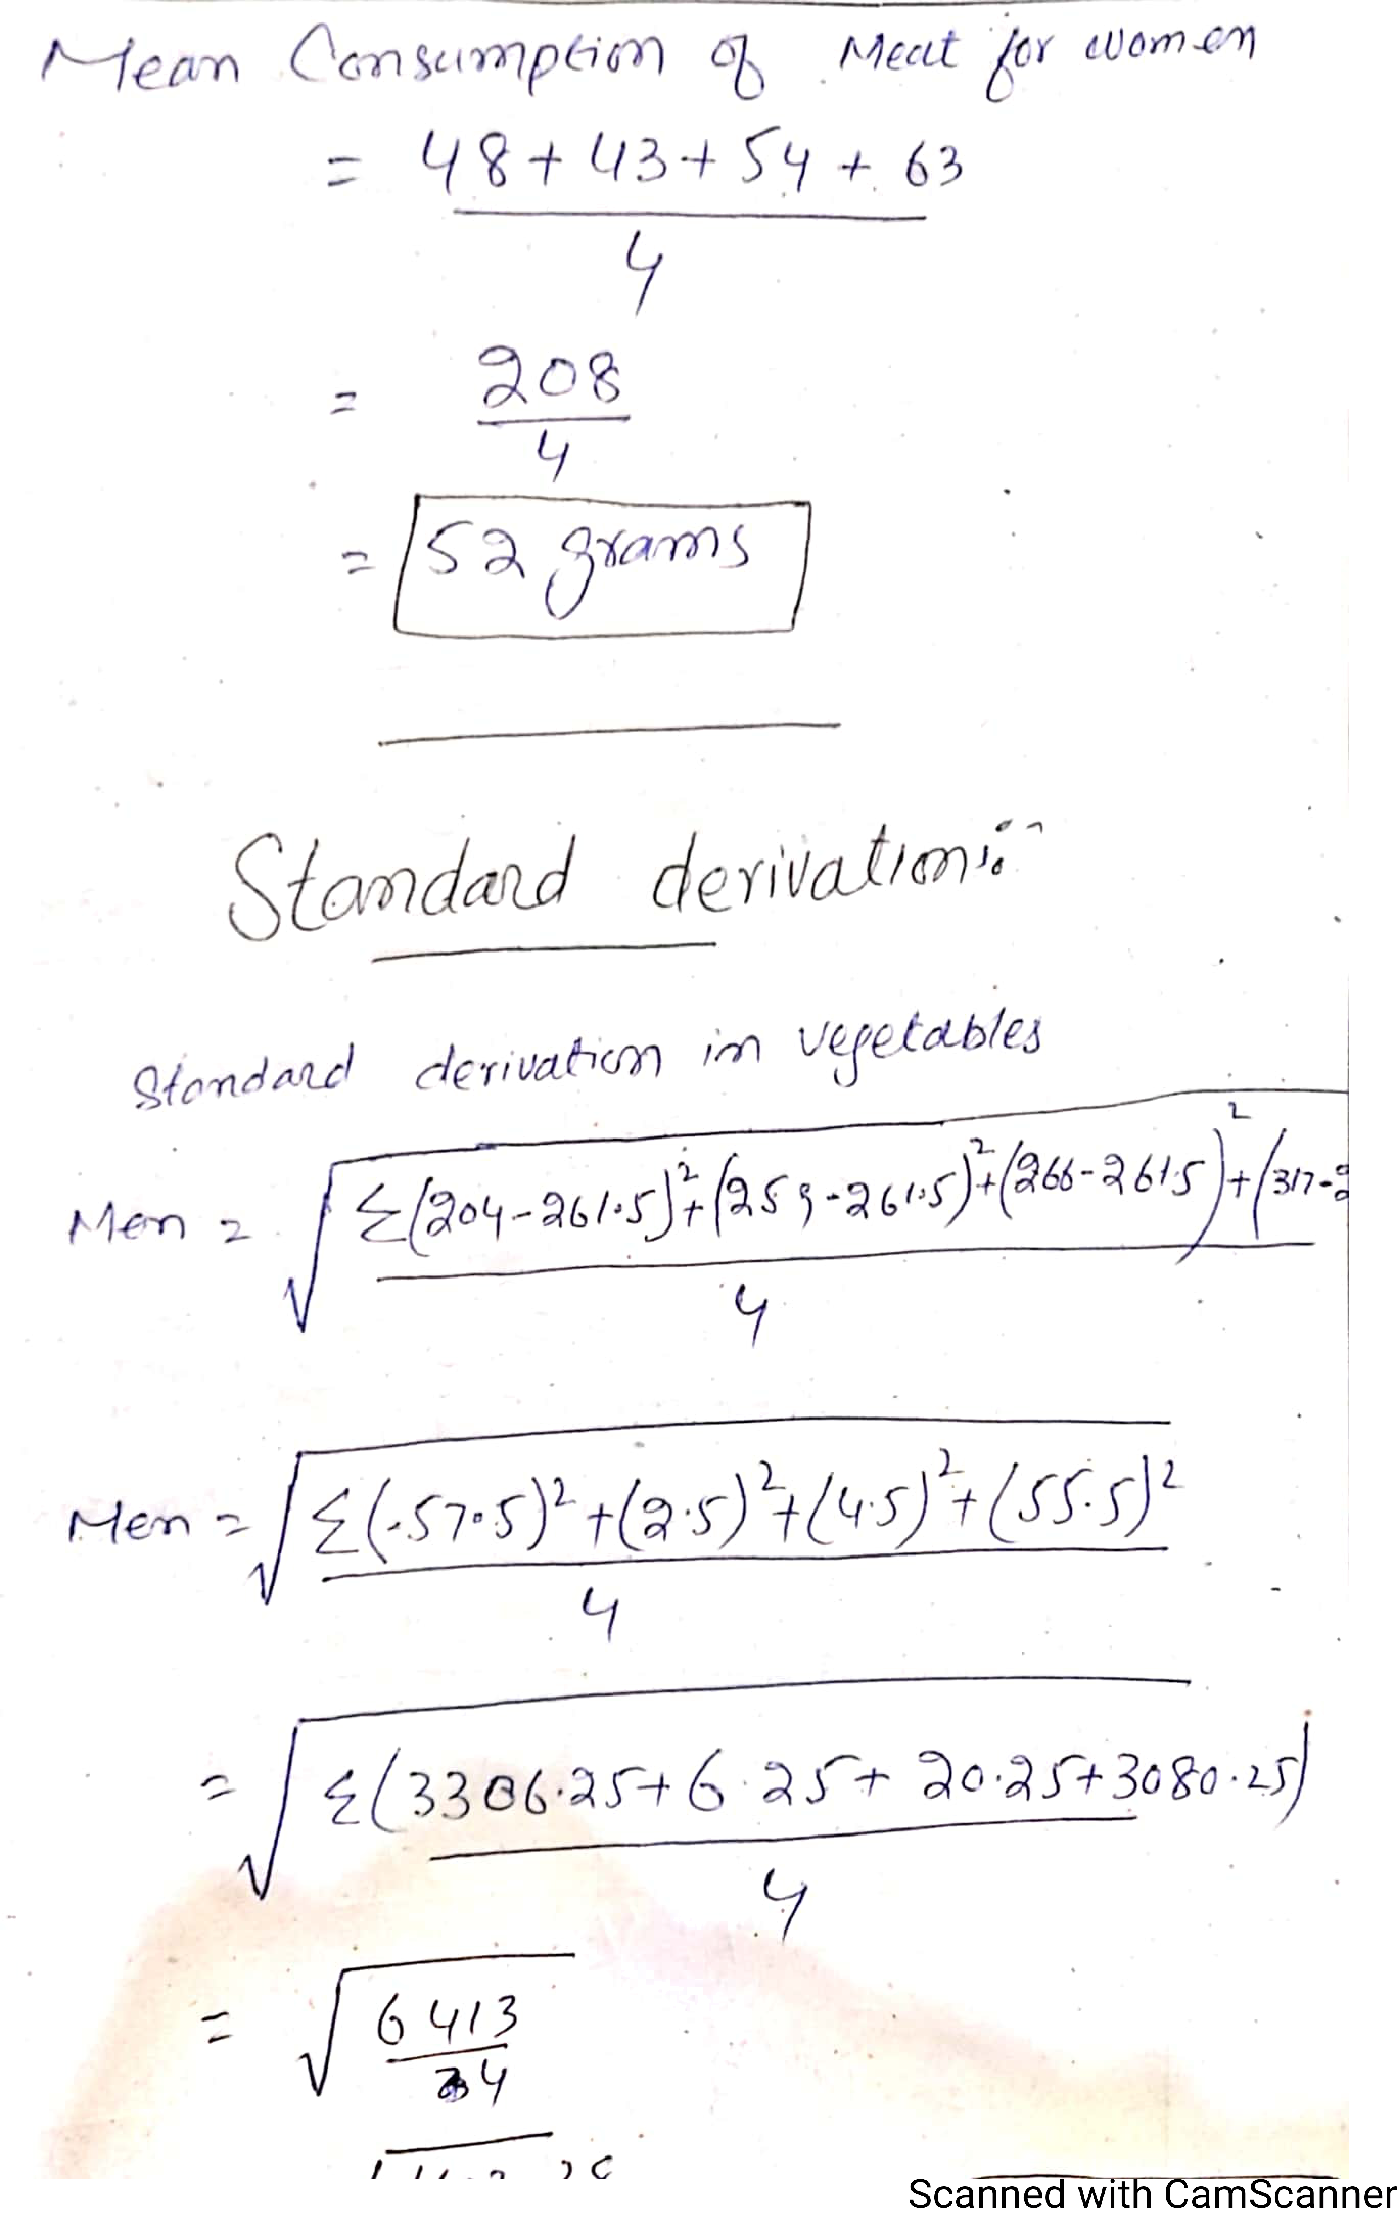 Mean Consumption of Meat for women
= 48 + 43 + 54 + 63
4
= 208
4
= 52 grams
Standard derivation:-
Standard derivation in vegetables
Men = √ Σ(204-261.5)²+(259-261.5)²+(266-261.5)²+(317-2
4
Men = √ Σ(-57.5)²+(2.5)²+(4.5)²+(55.5)²
4
= √ Σ(3306.25+6.25+20.25+3080.25)
4
= √ 6413
4
Scanned with CamScanner